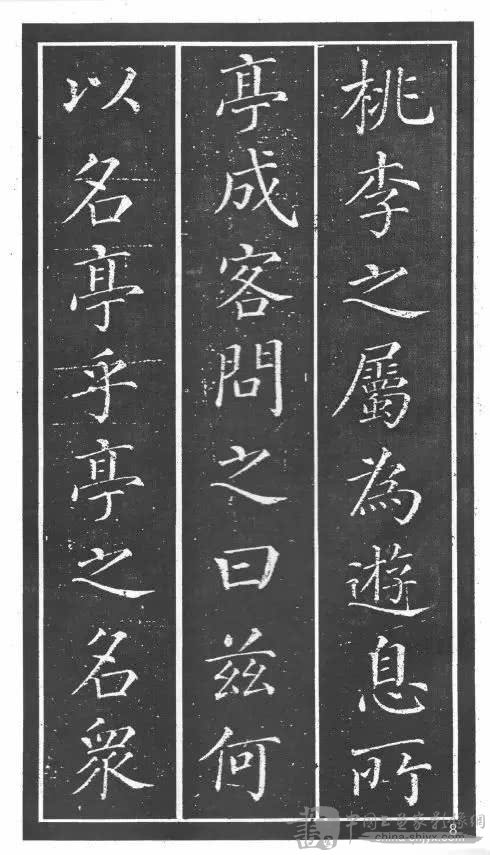 桃李之屬為遊息所
亭成客問之曰兹何
以名亭乎亭之名衆
8
中國書畫家影像網
china-shjyx.com